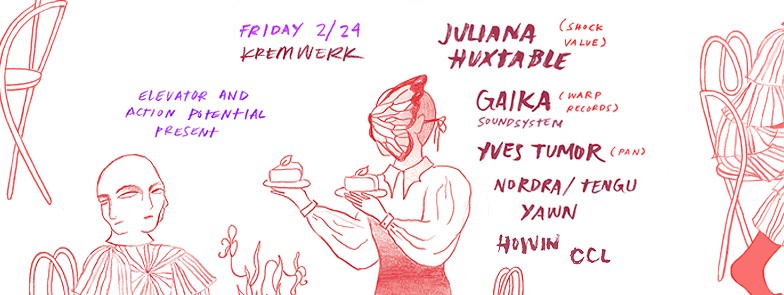 FRIDAY 2/24
KREMWERK
ELEVATOR AND
ACTION POTENTIAL
PRESENT
JULIANA
HUXTABLE
(SHOCK
VALUE)
GAIKA
(WARP
RECORDS)
SOUNDSYSTEM
YVES TUMOR (PAN)
NORDRA/TENGU
YAWN
HOWIN
CCL